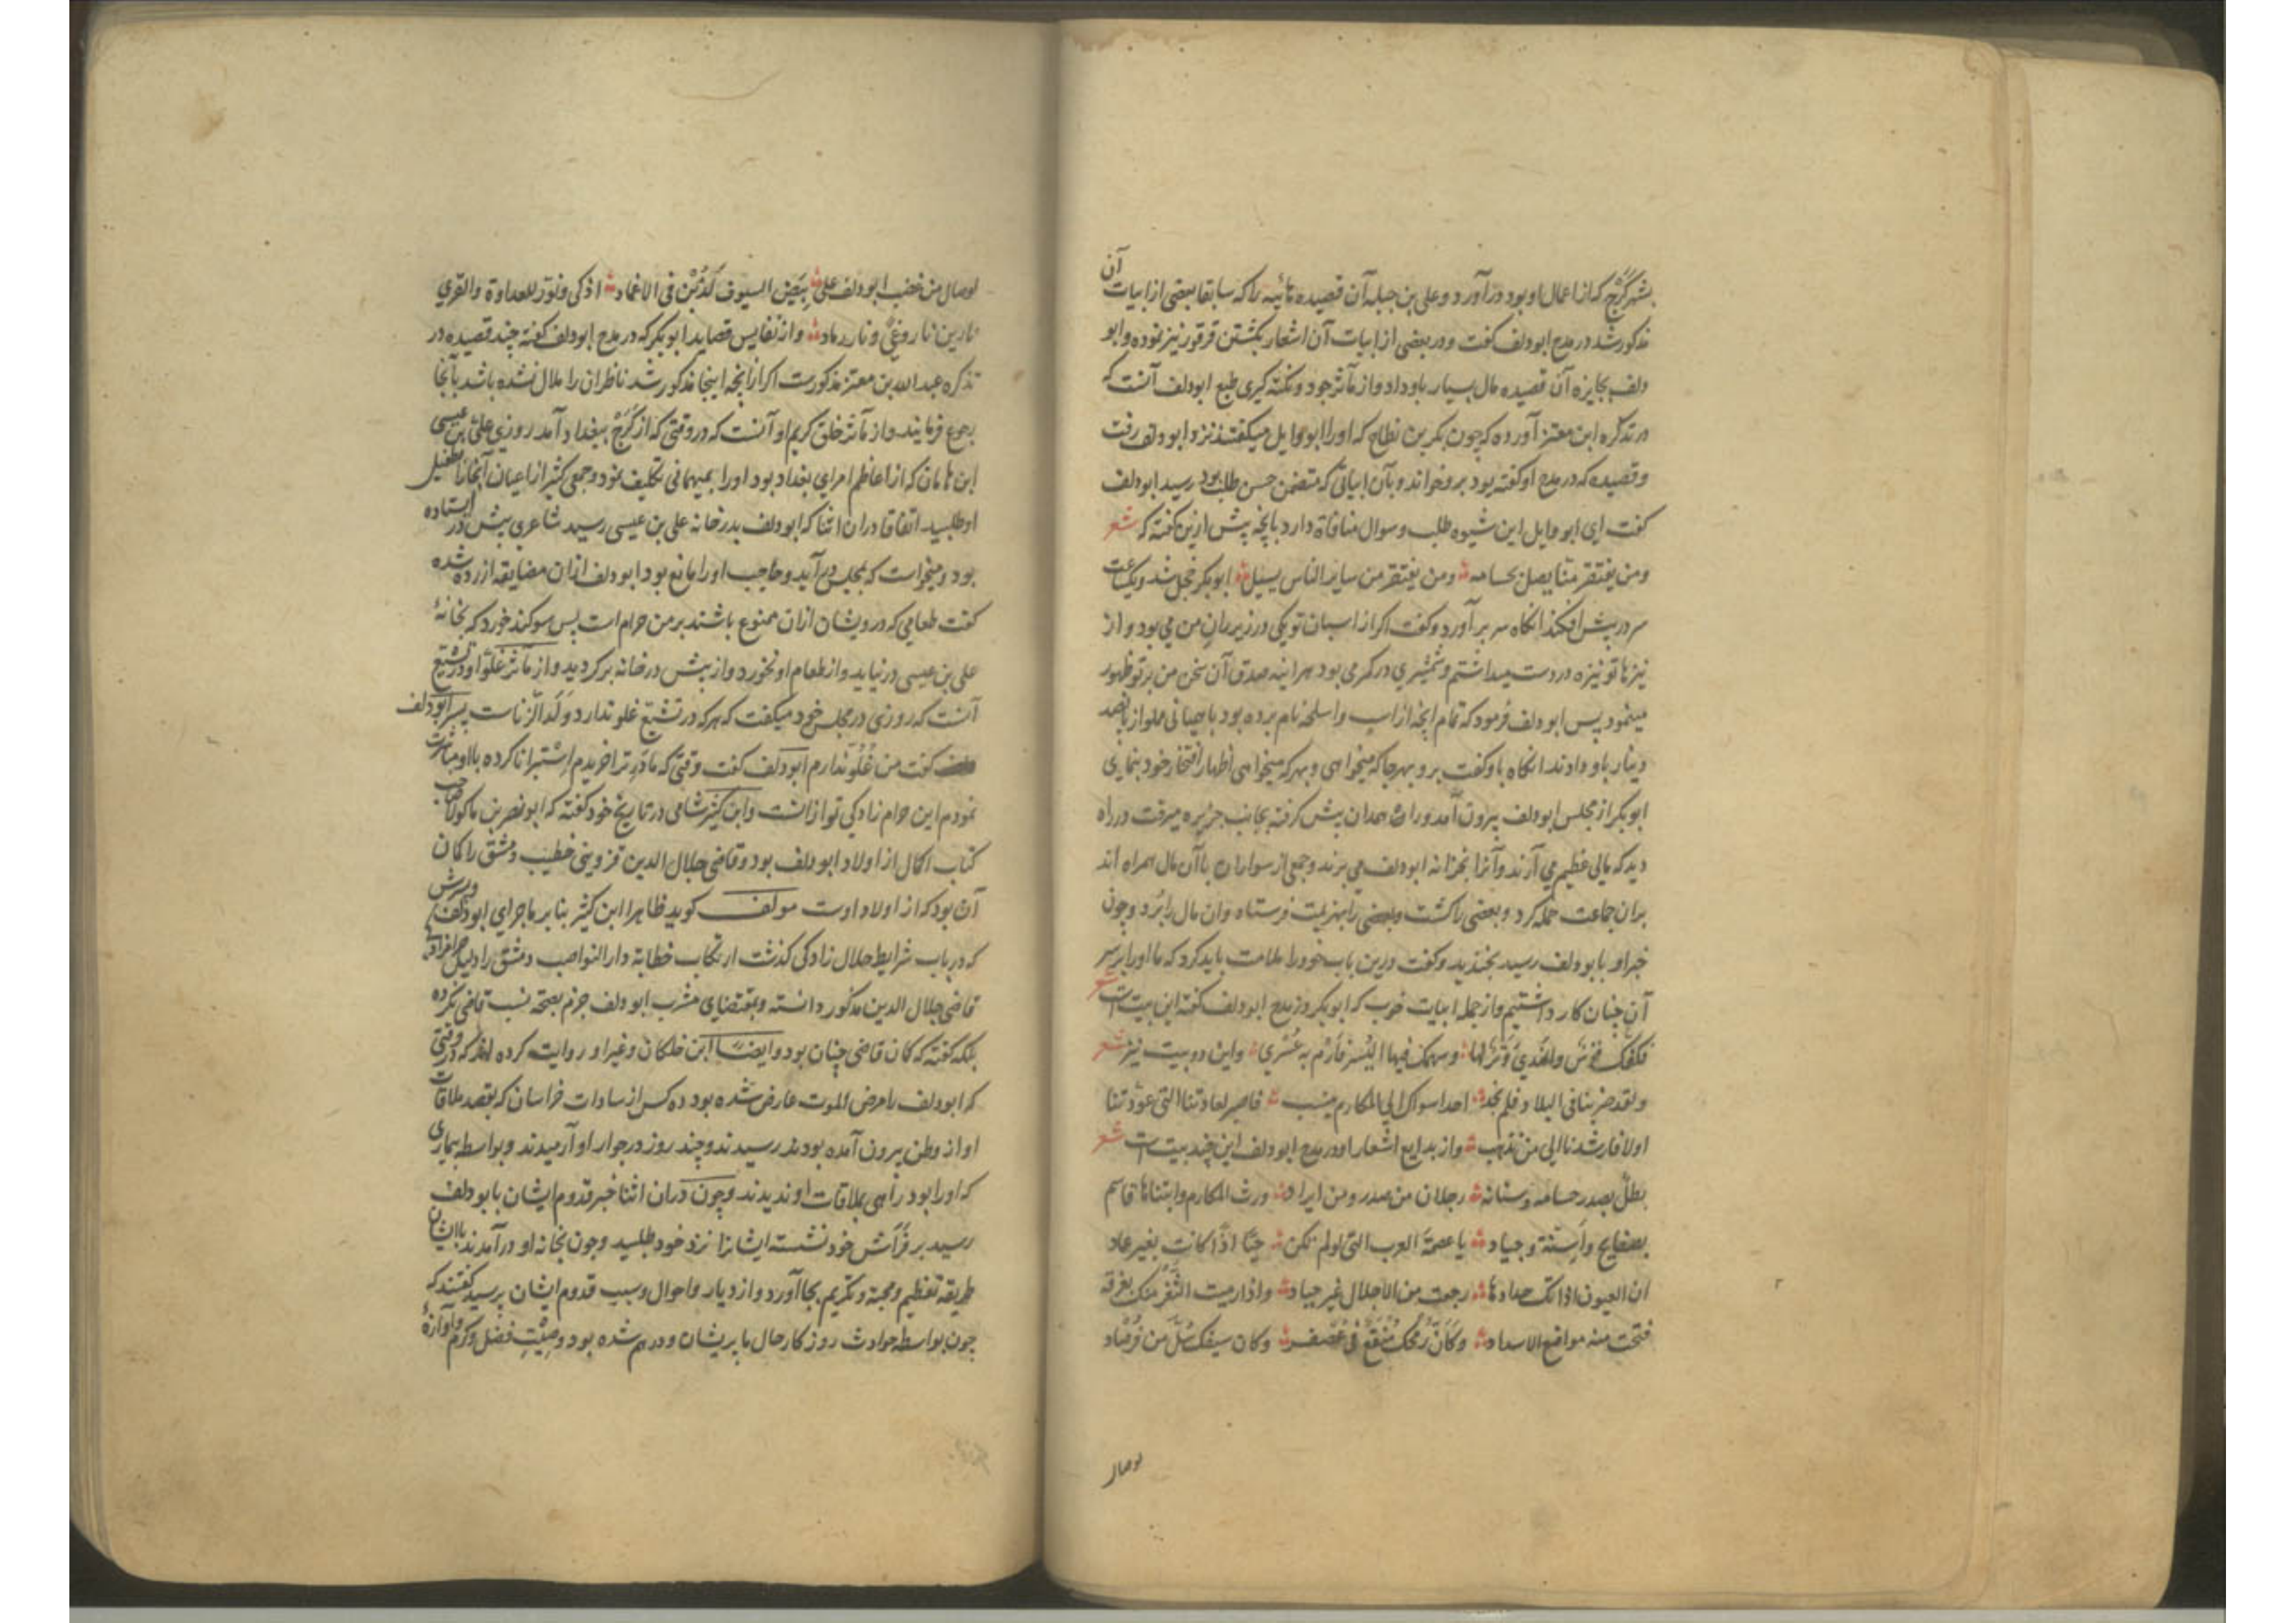 بشهر کَرَج که از اعمال او بود درآورد و علی بن جبله آن قصیده رائیه را که سابقا بعضی از ابیات آن
مذکور شد در مدح ابودلف گفت و در بعضی از ابیات آن اشعار بکشتن قرقور نیز نموده و ابو
دلف بجایزه آن قصیده مال بسیار باو داد و از مآثر جود و نکته گیری طبع ابودلف آنست که
در تذکره ابن معتز آورده که چون بکر بن نطاح که او را ابو وایل میگفتند نزد ابودلف رفت
و قصیده که در مدح او گفته بود برو خواند و بآن ابیاتی که متضمن حسن طلب بود رسید ابودلف
گفت ای ابو وایل این شیوه طلب و سوال منافاة دارد بآنچه پیش ازین گفته که شعر
ومن یفتقر منّا یصل بحسامه ومن یفتقر من سایر الناس یسیل ابوبکر خجل شد و یکساعت
سر در پیش افکند انکاه سر برآورد و گفت اگر از اسبان تو یکی در زیر ران من می بود و از
نیزها تو نیزه در دست میداشتم و شمشیری در کمر می بود هر اینه صدق آن سخن من بر تو ظهور
مینمود پس ابودلف فرمود که تمام انچه از اسب و اسلحه نام برده بود با همیانی مملو از پانصد
دینار باو دادند انکاه باو گفت برو بهرجا که میخواهی و بهرکه میخواهی اظهار افتخار خود بنمای
ابوبکر از مجلس ابودلف بیرون آمد و راه همدان پیش گرفته بجانب جزیره میرفت در راه
دید که مالی عظیم می آرند و آنرا بخزانه ابودلف می برند و جمعی از سواران با آن مال همراه اند
بران جماعت حمله کرد و بعضی را کشت و بعضی را بهزیمت فرستاد و ان مال را بُرد و چون
خبر او بابودلف رسید بخندید و گفت درین باب خود را ملامت باید کرد که ما او را بر سر
آن چنان کار داشتیم و از جمله ابیات خوب که ابوبکر در مدح ابودلف گفته این بیت است شعر
فکفک قوس والندی وَتَر لها وسهمک فیها الیُسر فارم به عُسری و این دو بیت نیز شعر
ولقد ضربنا فی البلاد فلم نجد احدا سواک الی المکارم ینسب فاصبر لعادتنا التی عوّدتنا
اولا فارشدنا الی من نذهب و از بدایع اشعار او در مدح ابودلف این چند بیت است شعر
بطلٌ بصدر حسامه وسنانه رجلان من صدر ومن ایراد ورث المکارم وابتناها قاسم
بصفایح واَسِنّة وجیاد یا عصمة العرب التی لو لم تکن حیّا اذا کانت بغیر عماد
ان العیون اذا رأتک حدادها رجعت من الاجلال غیر حداد واذا رمیت الثغر منک بغرفة
فتحت منه مواضع الاسداد وکأنّ رمحک منقع فی عصفر وکان سیفک سُلّ من فرصاد
لوصال
لوصال من غضب ابودلف علی بیض السیوف لَذُبْنَ فی الاغماد اذکی ونوّر للعداوة والقری
نارین نار وغیً ونار رماد و از نفایس قصاید ابوبکر که در مدح ابودلف گفته چند قصیده در
تذکره عبدالله بن معتز مذکورست اگر ازانچه اینجا مذکور شد ناظران را ملال نشده باشد بآنجا
رجوع فرمایند و از مآثر خلق کریم او آنست که در وقتی که از کَرَج ببغداد آمد روزی علی بن عیسی
ابن هامان که از اعاظم امرای بغداد بود او را بمیهمانی تکلیف نمود و جمعی کثیر از اعیان آنجا را بطفیل
او طلبید اتفاقا دران اثنا که ابودلف بدرخانه علی بن عیسی رسید شاعری پیش در ایستاده
بود و میخواست که بمجلس درآید و حاجب او را مانع بود ابودلف ازان مضایقه ازرده شده
گفت طعامی که درویشان ازان ممنوع باشند بر من حرام است پس سوگند خورد که بخانهٔ
علی بن عیسی درنیاید و از طعام او نخورد و از پیش درخانه برگردید و از مآثر غلوّ او در تشیّع
آنست که روزی در مجلس خود میگفت که هرکه در تشیّع غلو ندارد ولد الزناست پسر ابودلف
گفت من غُلُو ندارم ابودلف گفت وقتی که مادَر ترا خریدم اِسْتبرا ناکرده با او مباشرت
نمودم این حرام زادگی تو ازانست و ابن کثیر شامی در تاریخ خود گفته که ابونصر بن ماکولا صاحب
کتاب اکمال از اولاد ابودلف بود و قاضی جلال الدین قزوینی خطیب دمشق را گمان
آن بود که از اولاد اوست مولف گوید ظاهرا ابن کثیر بنا بر ماجرای ابودلف و پسرش
که در باب شرایط حلال زادگی گذشت ارتکاب خطابة دار النواصب دمشق را دلیل حرامزادگی
قاضی جلال الدین مذکور دانسته و بمقتضای مشرب ابودلف جزم بصحة نسب قاضی نکرده
بلکه گفته که گمان قاضی چنان بود و ایضاً ابن خلکان و غیر او روایت کرده اند که در وقتی
که ابودلف را مرض الموت عارض شده بود ده کس از سادات خراسان که بقصد ملاقات
او از وطن بیرون آمده بودند رسیدند و چند روز در جوار او آرمیدند و بواسطه بیماری
که او را بود راهی بملاقات او ندیدند و چون دران اثنا خبر قدوم ایشان بابودلف
رسید بر فَراش خود نشسته ایشانرا نزد خود طلبید و چون بخانه او درآمدند با ایشان
طریقه تعظیم و محبة و تکریم بجا آورد و از دیار و احوال و سبب قدوم ایشان پرسید گفتند که
چون بواسطه حوادث روزکار حال ما پریشان و درهم شده بود و صِیْتِ فضل و کرم و آوازهٔ